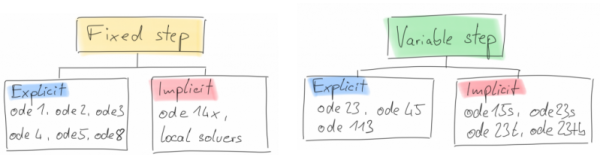 Fixed step
Explicit
ode 1, ode 2, ode3
ode 4, ode5, ode8
Implicit
ode 14x,
local solvers
Variable step
Explicit
ode 23, ode 45
ode 113
Implicit
ode15s, ode23s
ode 23t, ode 23tb